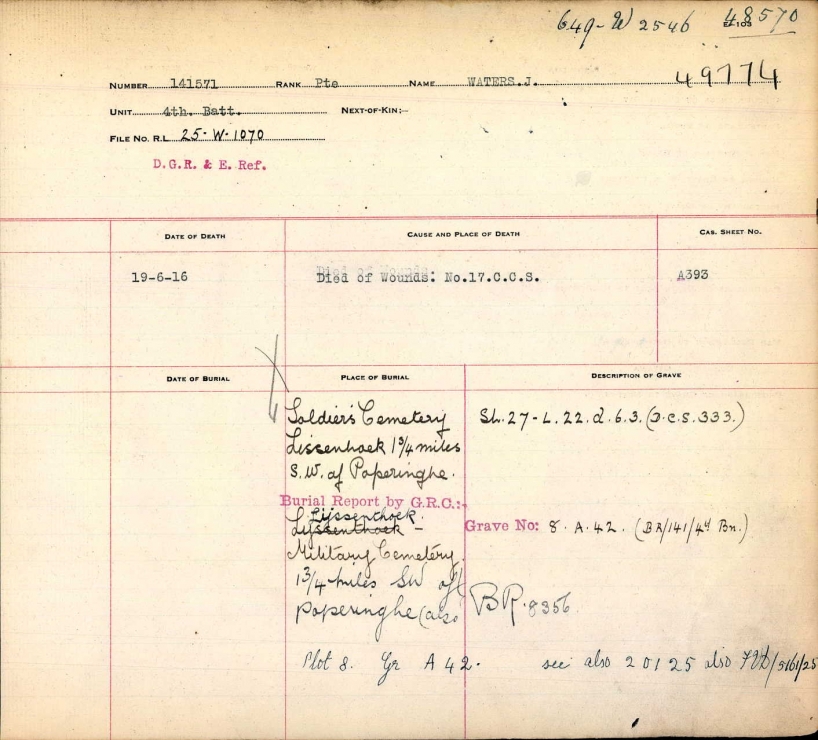 649-W 2546 48570
49774
NUMBER 141571 RANK Pte NAME WATERS.J.
UNIT 4th. Batt. NEXT-OF-KIN:-
FILE NO. R.L 25-W-1070
D.G.R. & E. Ref.
DATE OF DEATH CAUSE AND PLACE OF DEATH CAS. SHEET NO.
19-6-16 Died of Wounds: No.17.C.C.S. A393
DATE OF BURIAL PLACE OF BURIAL DESCRIPTION OF GRAVE
Soldier's Cemetery Sh.27-L.22.d.6.3.
Lissenhoek 1 3/4 miles
S.W. of Poperinghe.
Burial Report by G.R.C.:-
Lijssenthoek.
Lyssenthoek - Grave No: 8.A.42. (BR/141/4th Bn.)
Military Cemetery
1 3/4 miles SW of
Poperinghe (also BR.8356
Plot 8. Gr A 42. see also 20125 also